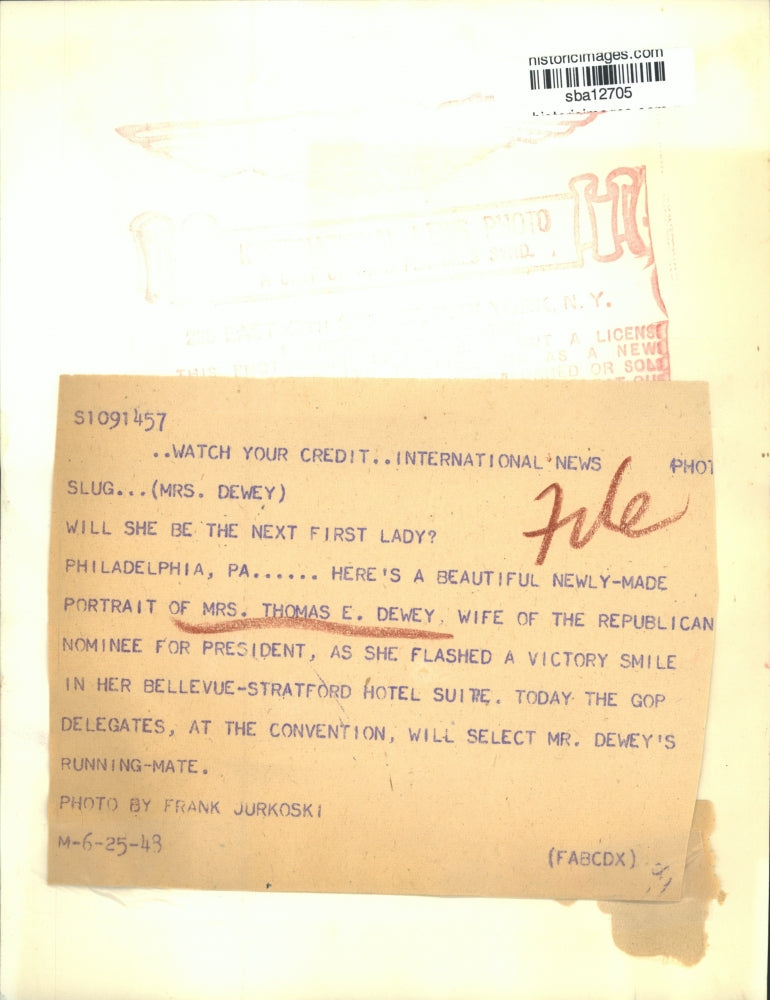 historicimages.com
sba12705
PHOTO
N. Y.
A LICENSE
AS A NEWS
THIS OR SOLD
S1091457
..WATCH YOUR CREDIT..INTERNATIONAL NEWS PHOT
SLUG...(MRS. DEWEY)
File
WILL SHE BE THE NEXT FIRST LADY?
PHILADELPHIA, PA...... HERE'S A BEAUTIFUL NEWLY-MADE
PORTRAIT OF MRS. THOMAS E. DEWEY, WIFE OF THE REPUBLICAN
NOMINEE FOR PRESIDENT, AS SHE FLASHED A VICTORY SMILE
IN HER BELLEVUE-STRATFORD HOTEL SUITE. TODAY THE GOP
DELEGATES, AT THE CONVENTION, WILL SELECT MR. DEWEY'S
RUNNING-MATE.
PHOTO BY FRANK JURKOSKI
M-6-25-48
(FABCDX)